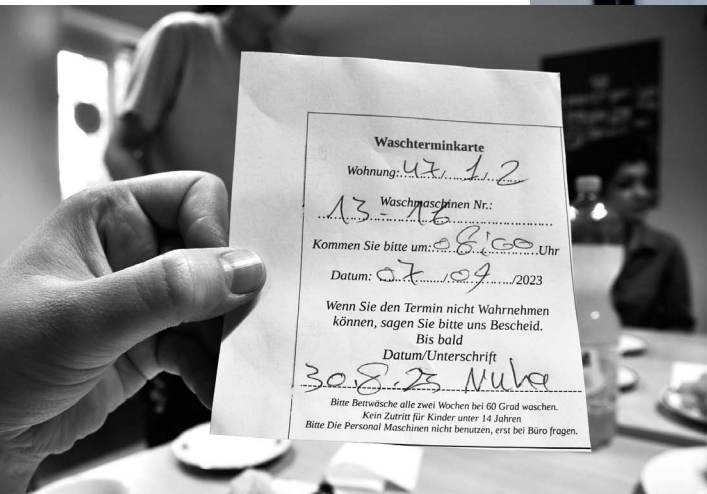 Waschterminkarte
Wohnung:47. 1. 2
Waschmaschinen Nr.:
13 - 16
Kommen Sie bitte um: 08:00 Uhr
Datum: 07 / 09 /2023
Wenn Sie den Termin nicht Wahrnehmen
können, sagen Sie bitte uns Bescheid.
Bis bald
Datum/Unterschrift
30.8.23 Nuha
Bitte Bettwäsche alle zwei Wochen bei 60 Grad waschen.
Kein Zutritt für Kinder unter 14 Jahren
Bitte Die Personal Maschinen nicht benutzen, erst bei Büro fragen.